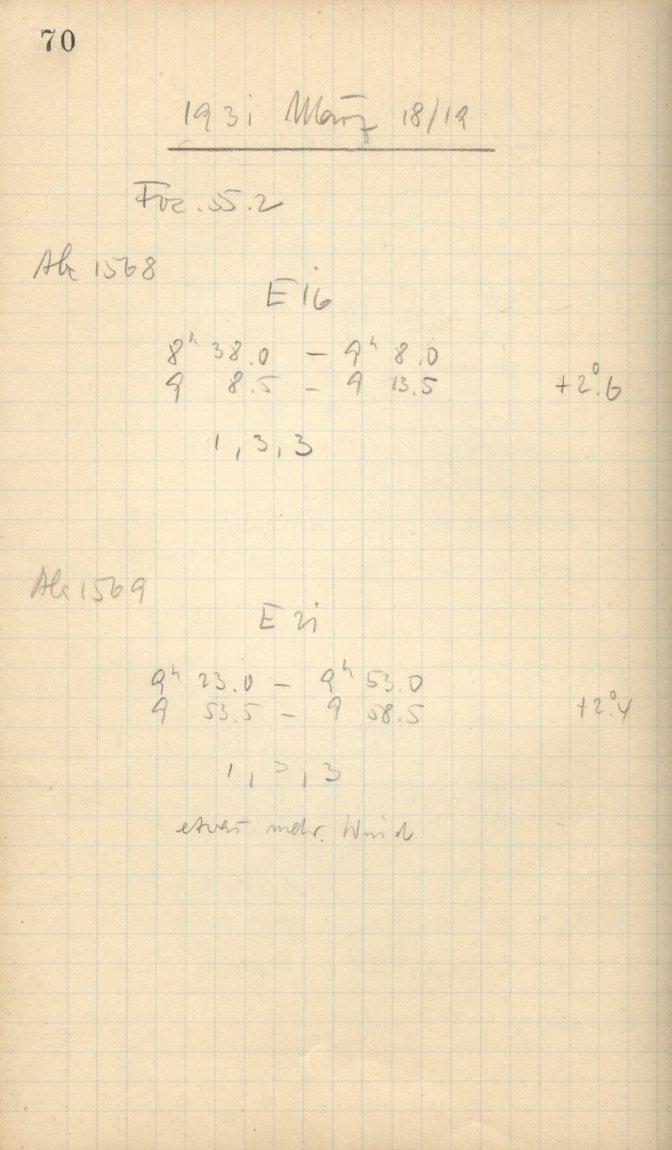 70
1931 März 18/19
Foc. 55.2
Ab 1568
E 16
8ʰ 38.0 – 9ʰ 8.0
9 8.5 – 9 13.5 +2°.6
1, 3, 3
Ab 1569
E 21
9ʰ 23.0 – 9ʰ 53.0
9 53.5 – 9 58.5 +2°.4
1, 3, 3
etwas mehr Wind